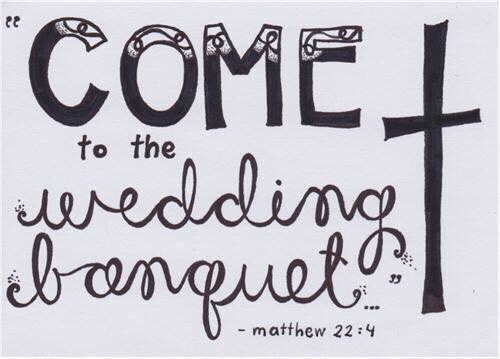 “COME
to the
wedding
banquet...”
- matthew 22:4